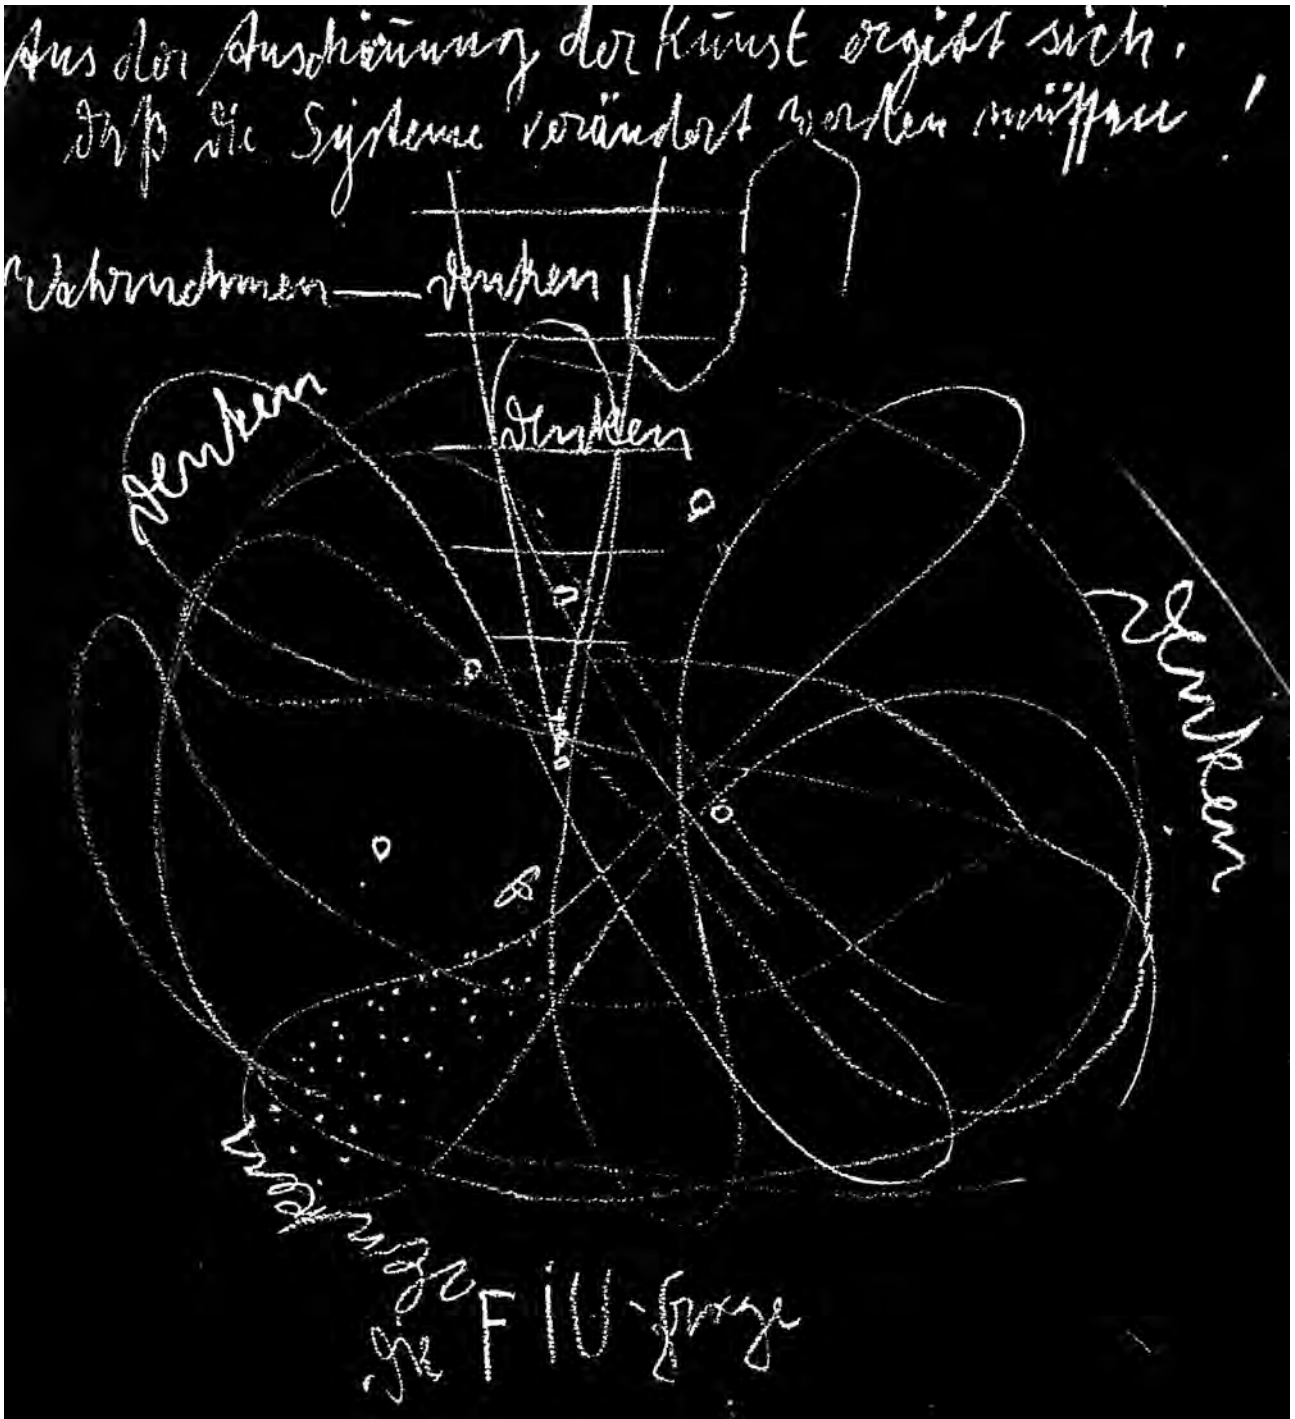 Aus der Anschauung der Kunst ergibt sich,
daß die Systeme verändert werden müssen !
Wahrnehmen — denken
denken
denken
denken
denken
die FIU-frage